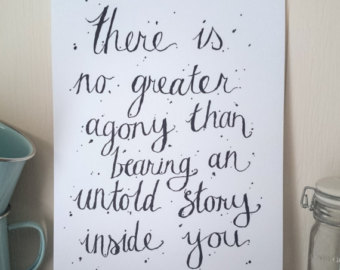 there is
no greater
agony than
bearing an
untold story
inside you